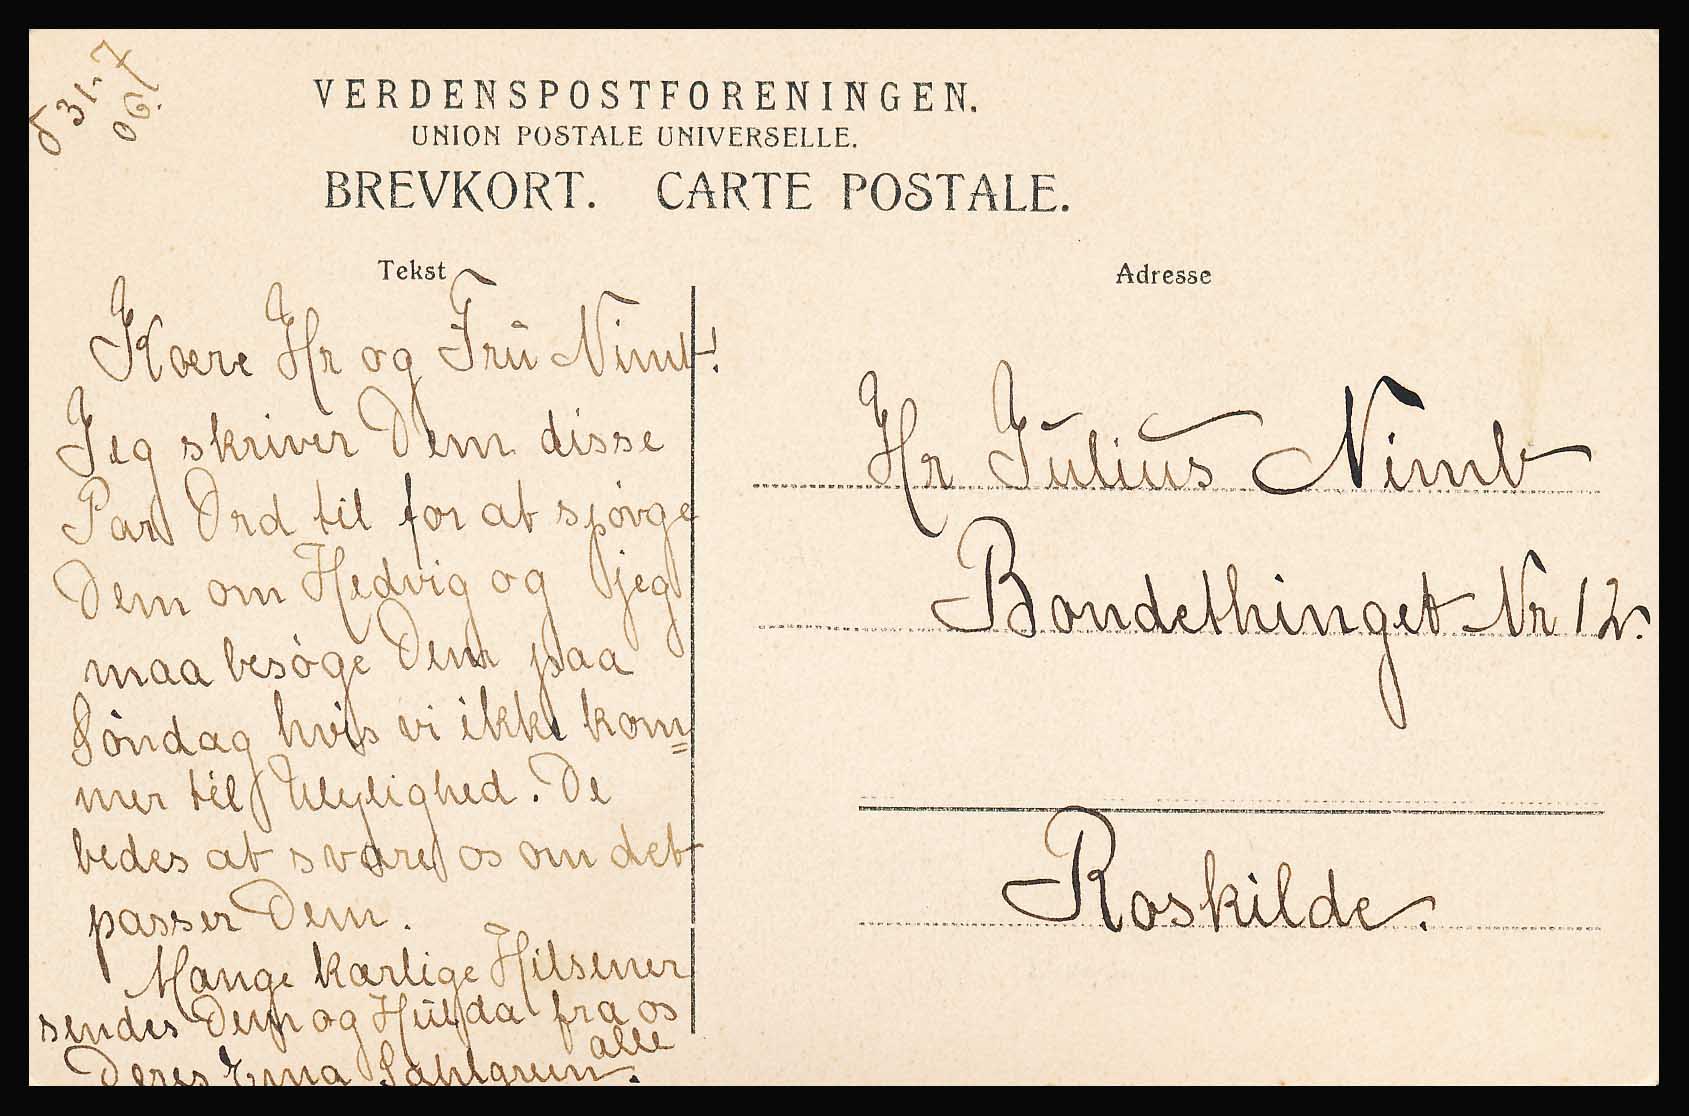 d 31-7
06.
VERDENSPOSTFORENINGEN.
UNION POSTALE UNIVERSELLE.
BREVKORT. CARTE POSTALE.
Tekst
Kære Hr og Frú Nimb!
Jeg skriver Dem disse
Par Ord til for at spørge
Dem om Hedvig og jeg
maa besøge Dem paa
Søndag hvis vi ikke kom=
mer til Ulylighed. De
bedes at svare os om det
passer Dem.
Mange kærlige Hilsener
sendes Dem og Húlda fra os
alle
Deres Erna Sahlgreen.
Adresse
Hr Júliús Nimb
Bondethinget Nr 12.
Roskilde.